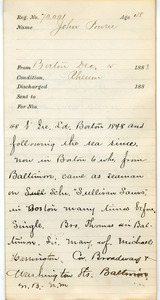 Reg. No. Age 48
Name John Power
From Boston Dec. 188
Condition, Rheum
Discharged 188
Sent to
For No.
48 S. Ire. Ld. Boston 1848 and
following the sea since.
now in Boston 6 wk from
Baltimore, came as seaman
on Sch. "Sullivan Sawin"
in Boston many times before
Single. Bro. Thomas in Bal-
timore. Si. Mary, w. of Michael
Harrington Co. Broadway &
Washington Sts. Baltimore